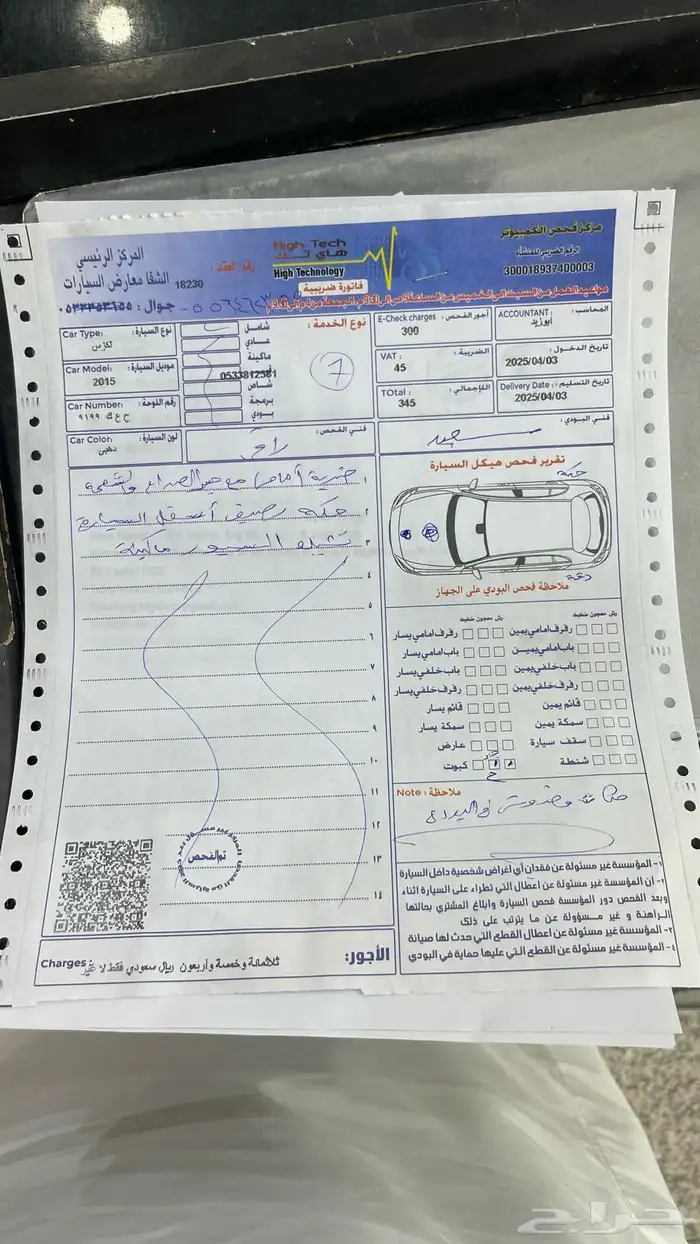 مركز فحص الكمبيوتر
الرقم الضريبي للمنشأة:
300018937400003
High Tech
هاي تك
High Technology
فاتورة ضريبية
رقم العقد : 18230
المركز الرئيسي
الشفا معارض السيارات
جوال :
مواعيد العمل من السبت الى الخميس من الساعة
ACCOUNTANT : المحاسب :
ابوزيد
E-Check charges : أجور الفحص :
300
نوع الخدمة :
7
شامل
عادي
ماكينة
0533812581
شاص
برمجة
بودي
Car Type: نوع السيارة :
لكزس
تاريخ الدخول :
2025/04/03
VAT : الضريبة :
45
Car Model: موديل السيارة :
2015
Delivery Date : تاريخ التسليم :
2025/04/03
TOtal : الإجمالي :
345
Car Number: رقم اللوحة :
ح ع ك ٩١٩٩
فني البودي :
سعيد
فني الفحص :
Car Color: لون السيارة :
ذهبي
تقرير فحص هيكل السيارة
ملاحظة فحص البودي على الجهاز
١ ضربة أمام مع
٢ حكه رصيف أسفل السيارة
٣ تشيك السيور ماكينة
٤
٥
٦
٧
٨
٩
١٠
١١
١٢
١٣
١٤
رش معجون شكيك
رش معجون شكيك
رفرف امامي يمين
رفرف امامي يسار
باب امامي يمين
باب امامي يسار
باب خلفي يمين
باب خلفي يسار
رفرف خلفي يمين
رفرف خلفي يسار
قائم يمين
قائم يسار
سمكة يمين
سمكة يسار
سقف سيارة
عارض
شنطة
كبوت
Note : ملاحظة :
وخدوش في البودي
تم الفحص
١- المؤسسة غير مسئولة عن فقدان أي أغراض شخصية داخل السيارة
٢- ان المؤسسة غير مسئولة عن اعطال التي تطراء على السيارة اثناء
وبعد الفحص دور المؤسسة فحص السيارة وابلاغ المشتري بحالتها
الراهنة و غير مسؤولة عن ما يترتب على ذلك
٣- المؤسسة غير مسئولة عن اعطال القطع التي حدث لها صيانة
٤- المؤسسة غير مسئولة عن القطع التي عليها حماية في البودي
الأجور:
Charges : ثلاثمائة وخمسة واربعون ريال سعودي فقط لا غير
حراج